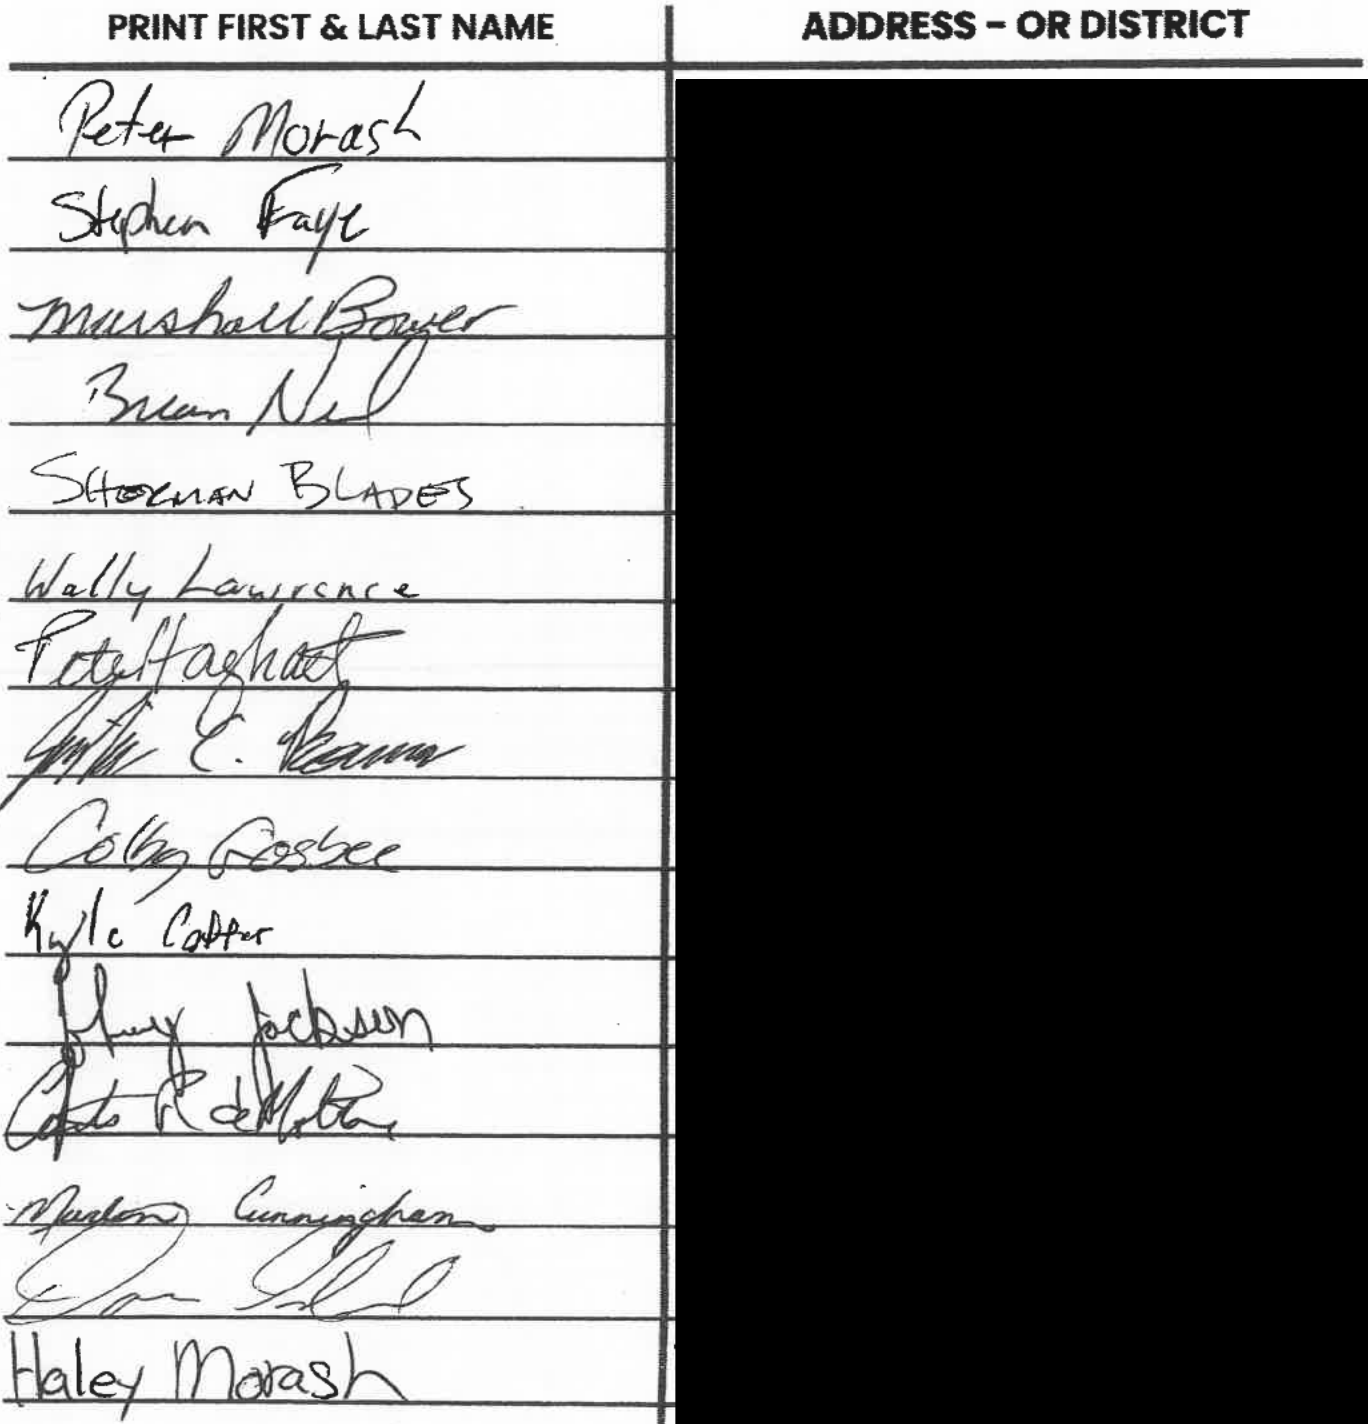 PRINT FIRST & LAST NAME ADDRESS – OR DISTRICT
Peter Morash
Stephen Faye
Marshall Bower
Brian
SHERMAN BLADES
Wally Lawrence
Peter
E.
Colby Gosbee
Kyle Cotter
Jackson
R
Cunningham
Haley Morash